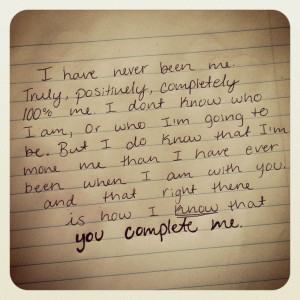 I have never been me.
Truly, positively, completely
100% me. I dont know who
I am, or who I'm going to
be. But I do know that I'm
more me than I have ever
been when I am with you.
and that right there
is how I know that
you complete me.